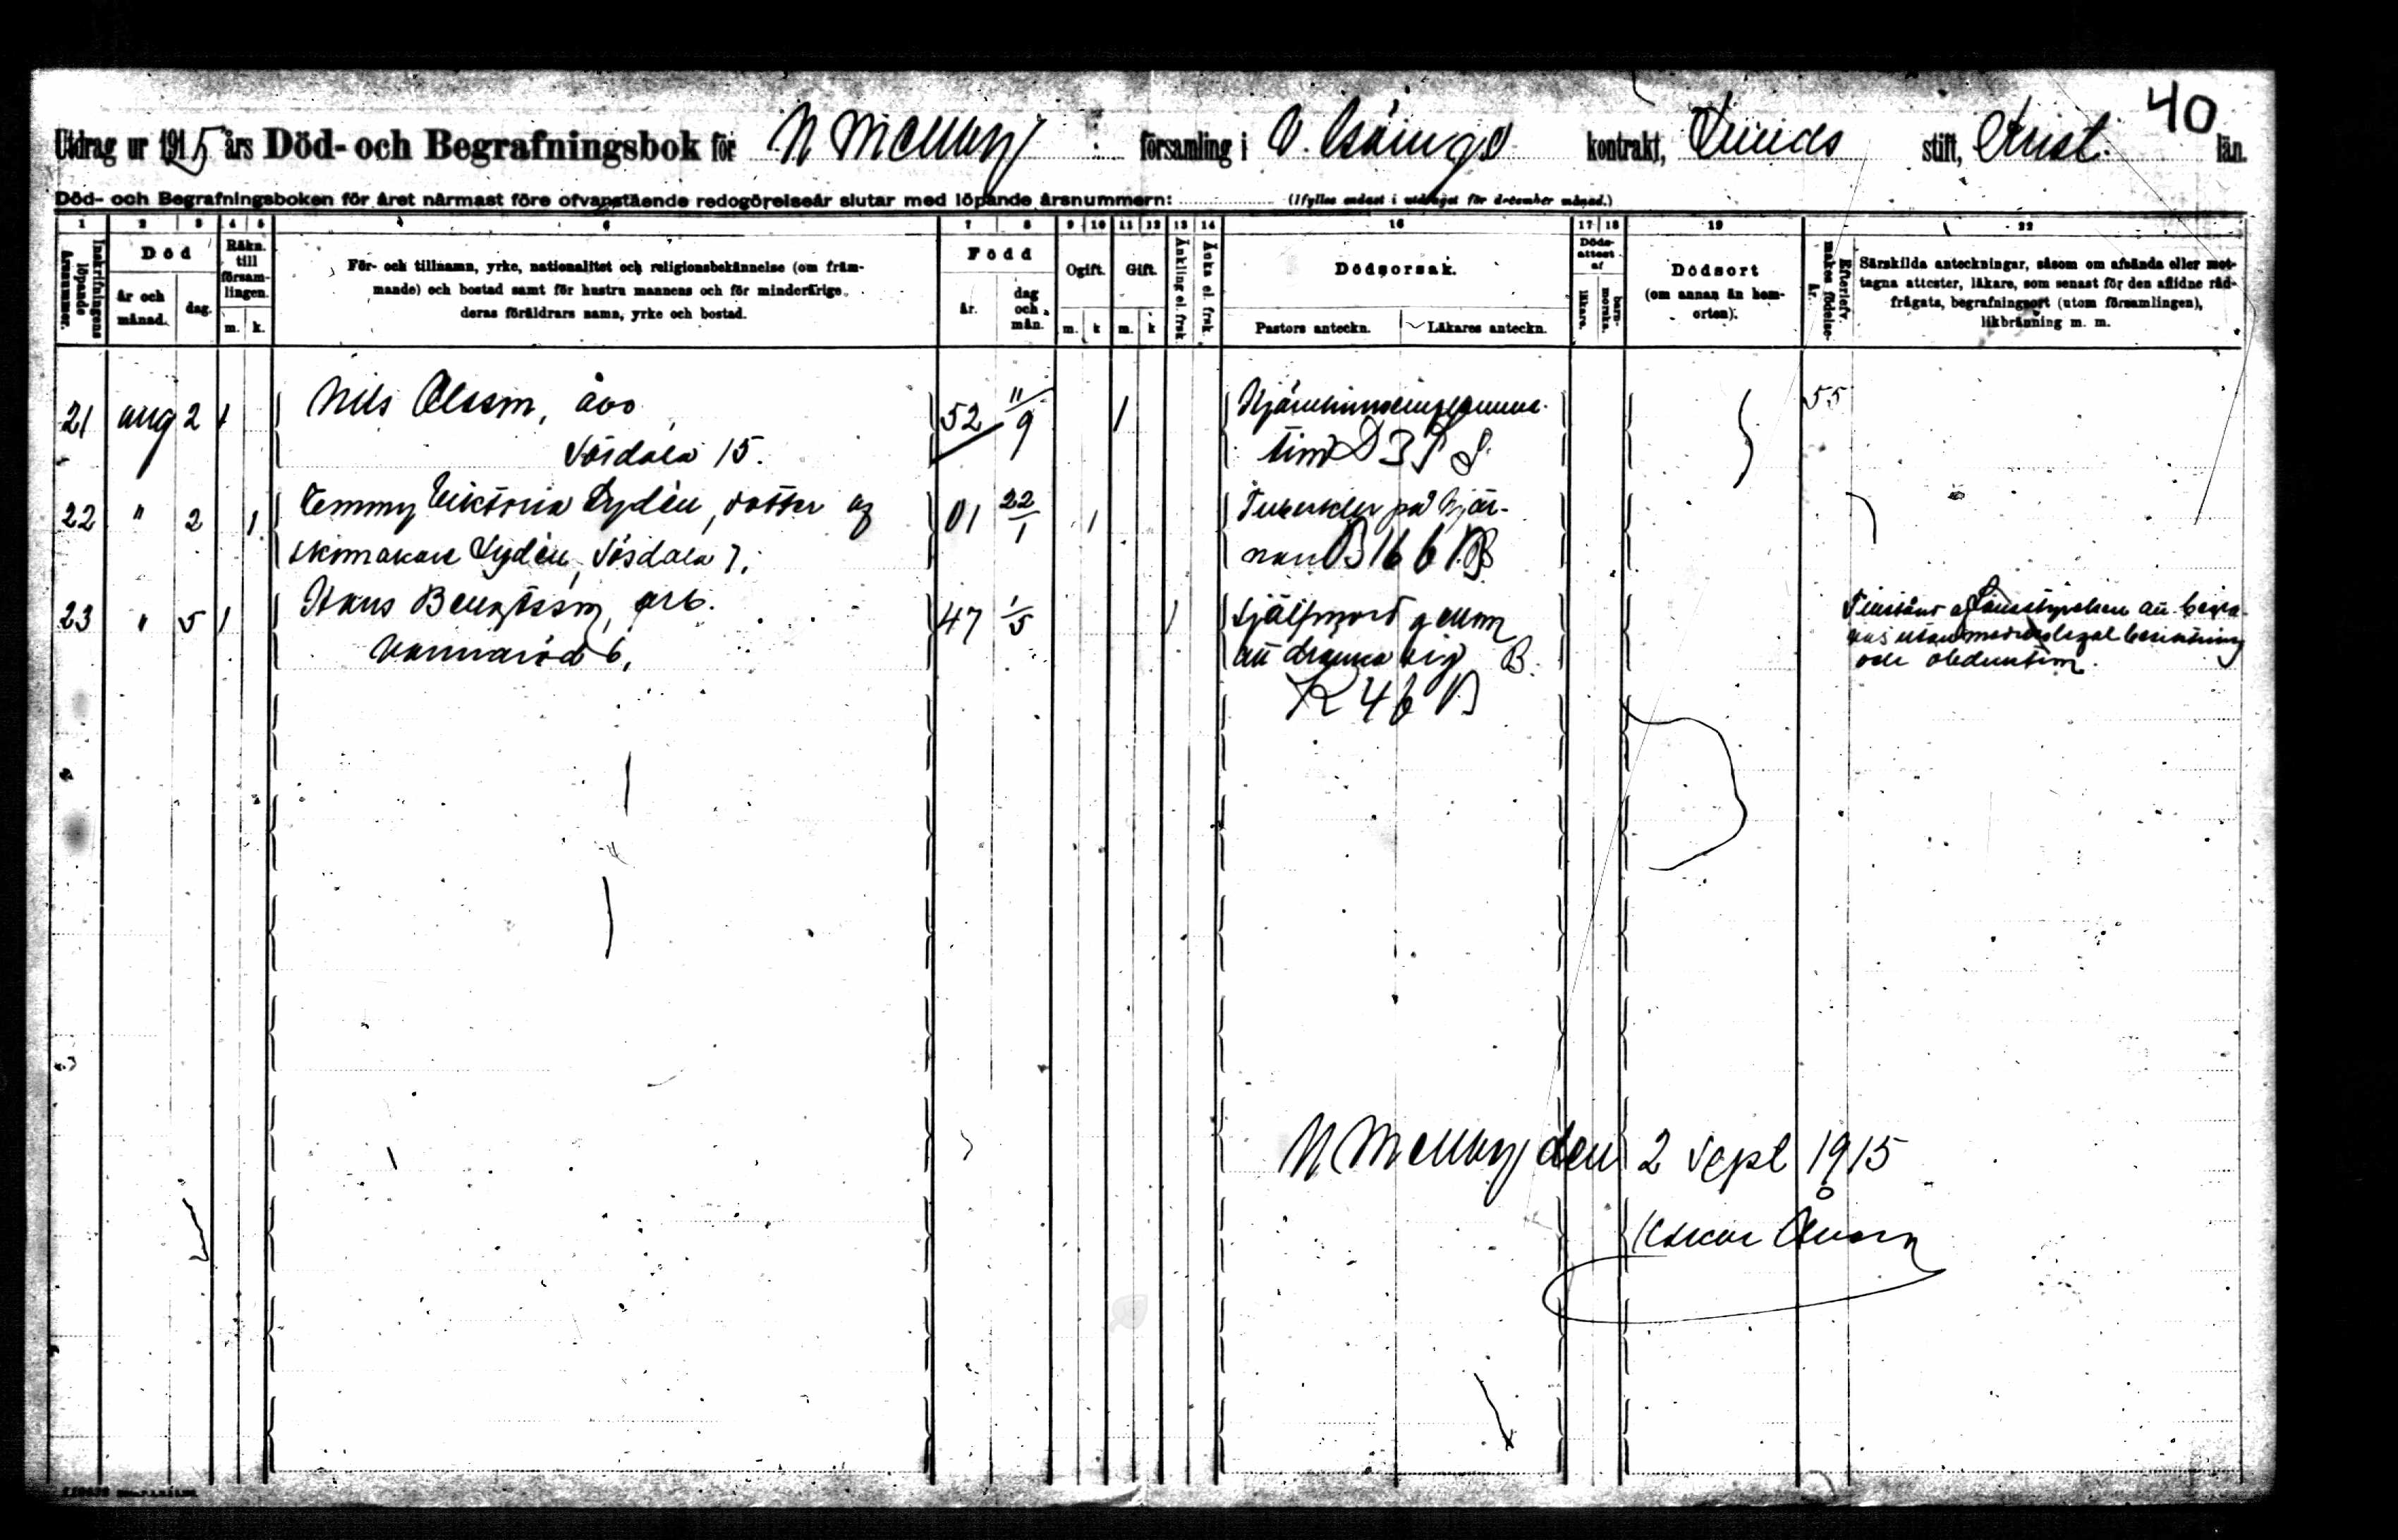 40
Utdrag ur 1915 års Död- och Begrafningsbok för N Mellby församling i V. Göinge kontrakt, Lunds stift, Krist. län.
Död- och Begrafningsboken för året närmast före ofvanstående redogörelseår slutar med löpande årsnummern: (Ifylles endast i utdraget för december månad.)
1 2 3 4 5 6 7 8 9 10 11 12 13 14 16 17 18 19 22
Inskrifningens löpande årsnummer.
Död
år och månad.
dag.
Räkn. till församlingen.
m. k.
För- och tillnamn, yrke, nationalitet och religionsbekännelse (om främ-
mande) och bostad samt för hustru mannens och för minderårige
deras föräldrars namn, yrke och bostad.
Född
år.
dag och mån.
Ogift.
m. k
Gift.
m. k
Änkling el. frsk.
Änka el. frsk.
Dödsorsak.
Pastors anteckn.
Läkares anteckn.
Döds-attest af
läkare.
barnmorska.
Dödsort
(om annan än hem-
orten).
Efterlefv. makes födelseår.
Särskilda anteckningar, såsom om afsända eller mot-
tagna attester, läkare, som senast för den aflidne råd-
frågats, begrafningsort (utom församlingen),
likbränning m. m.
21 aug 2 1 Nils Olsson, åbo 52 11/9 1 Hjärnhinneinflamma- 55
Sösdala 15. tion D 3
22 " 2 1 Emmy Viktoria Lydén, dotter af 01 22/1 1 Tuberkler på hjär-
skomakare Lydén, Sösdala 7. nan B 16 6
23 " 5 1 Hans Bengtsson, arb. 47 1/5 1 Självmord genom Tillstånd af Länsstyrelsen att begra-
Vannaröd 6, att dränka sig B. vas utan medicolegal besiktning
och obduktion.
K 46 B
N Mellby den 2 Sept 1915
Oskar